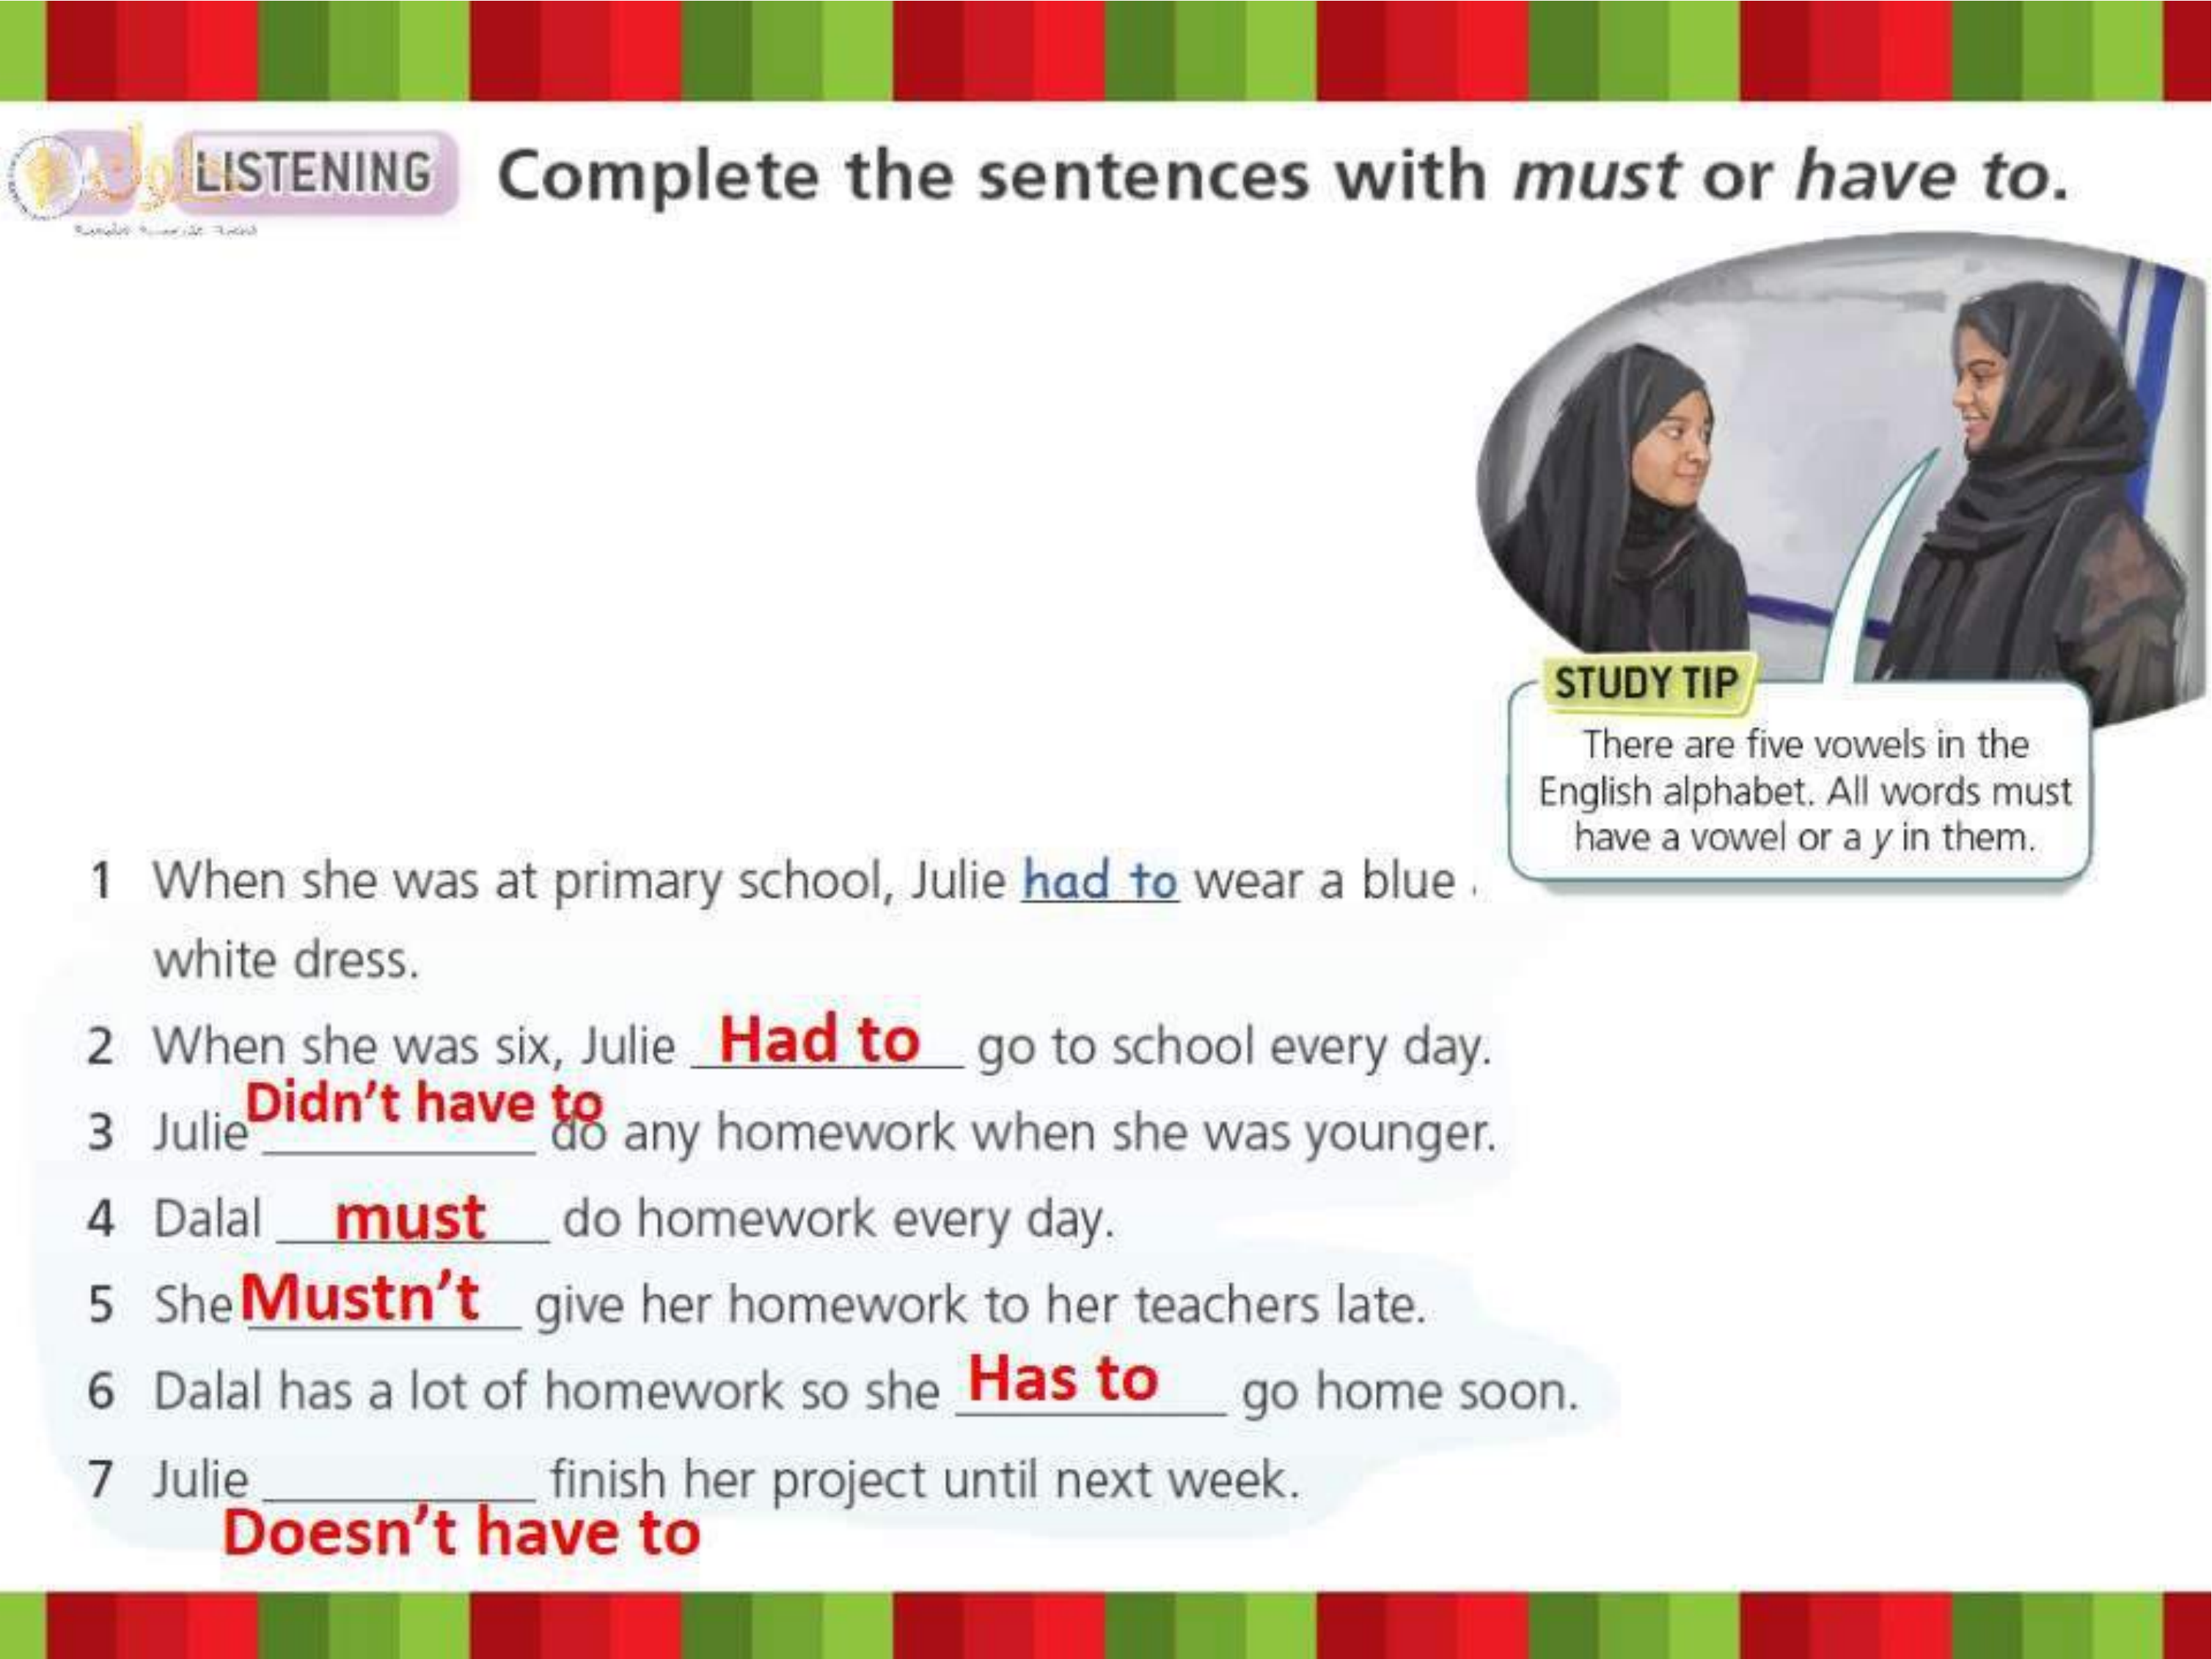 LISTENING Complete the sentences with must or have to.
STUDY TIP
There are five vowels in the
English alphabet. All words must
have a vowel or a y in them.
1 When she was at primary school, Julie had to wear a blue
white dress.
2 When she was six, Julie Had to go to school every day.
3 Julie Didn't have to do any homework when she was younger.
4 Dalal must do homework every day.
5 She Mustn't give her homework to her teachers late.
6 Dalal has a lot of homework so she Has to go home soon.
7 Julie __________ finish her project until next week.
Doesn't have to